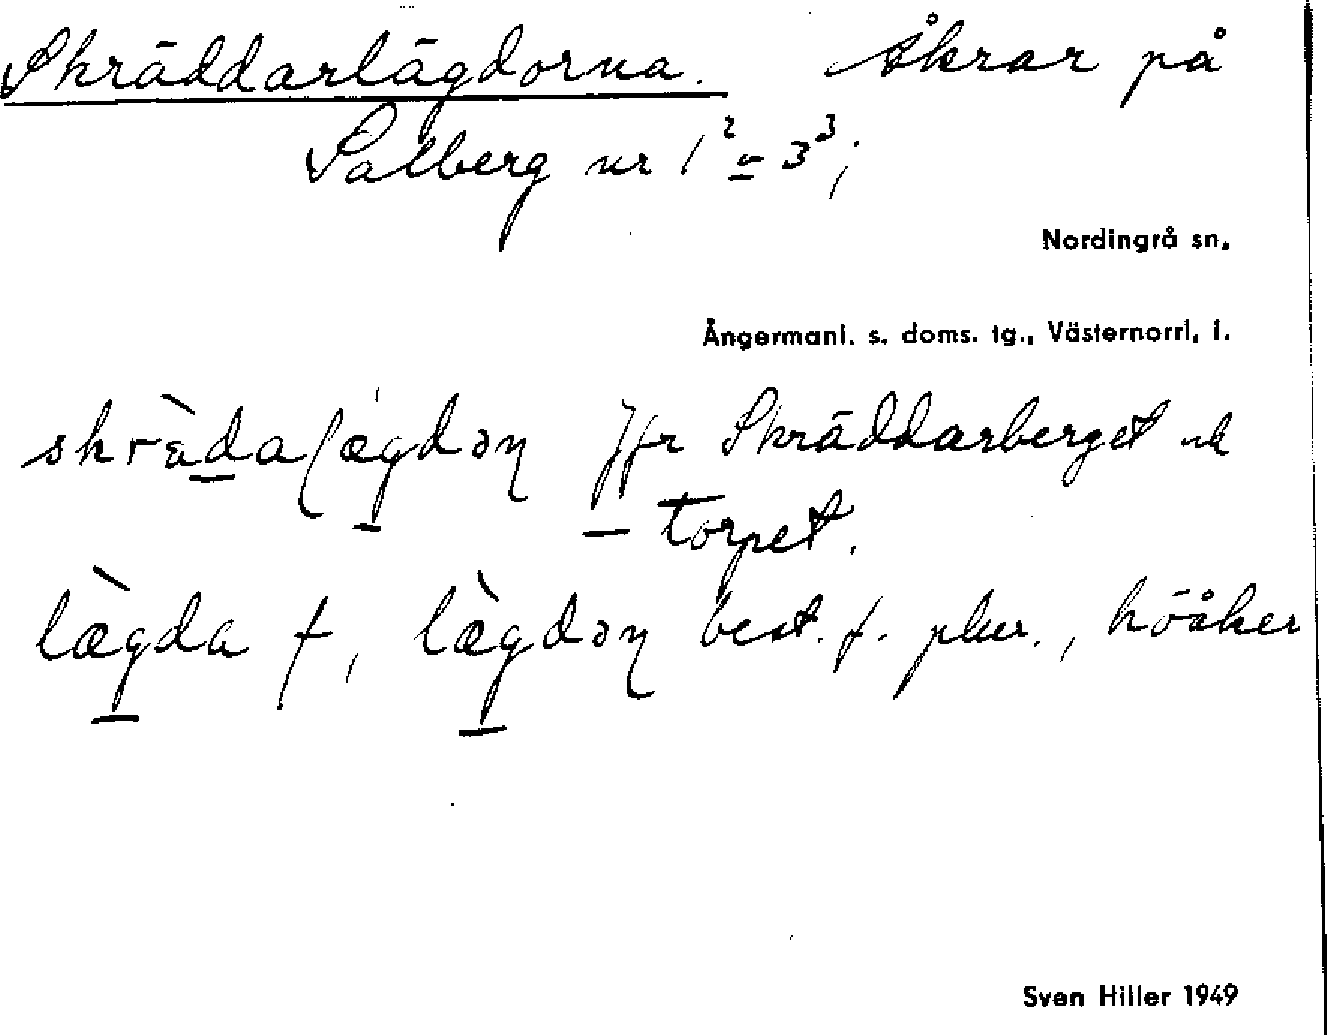 Skräddarlägdorna. Åkrar på
Salberg nr 1² = 3³;
Nordingrå sn.
Ångermanl. s. doms. tg., Västernorrl. l.
skrädaɭægdəɳ Jfr Skräddarberget ch
– torpet.
lægda f, lægdəɳ best. f. plur., höåker
Sven Hiller 1949